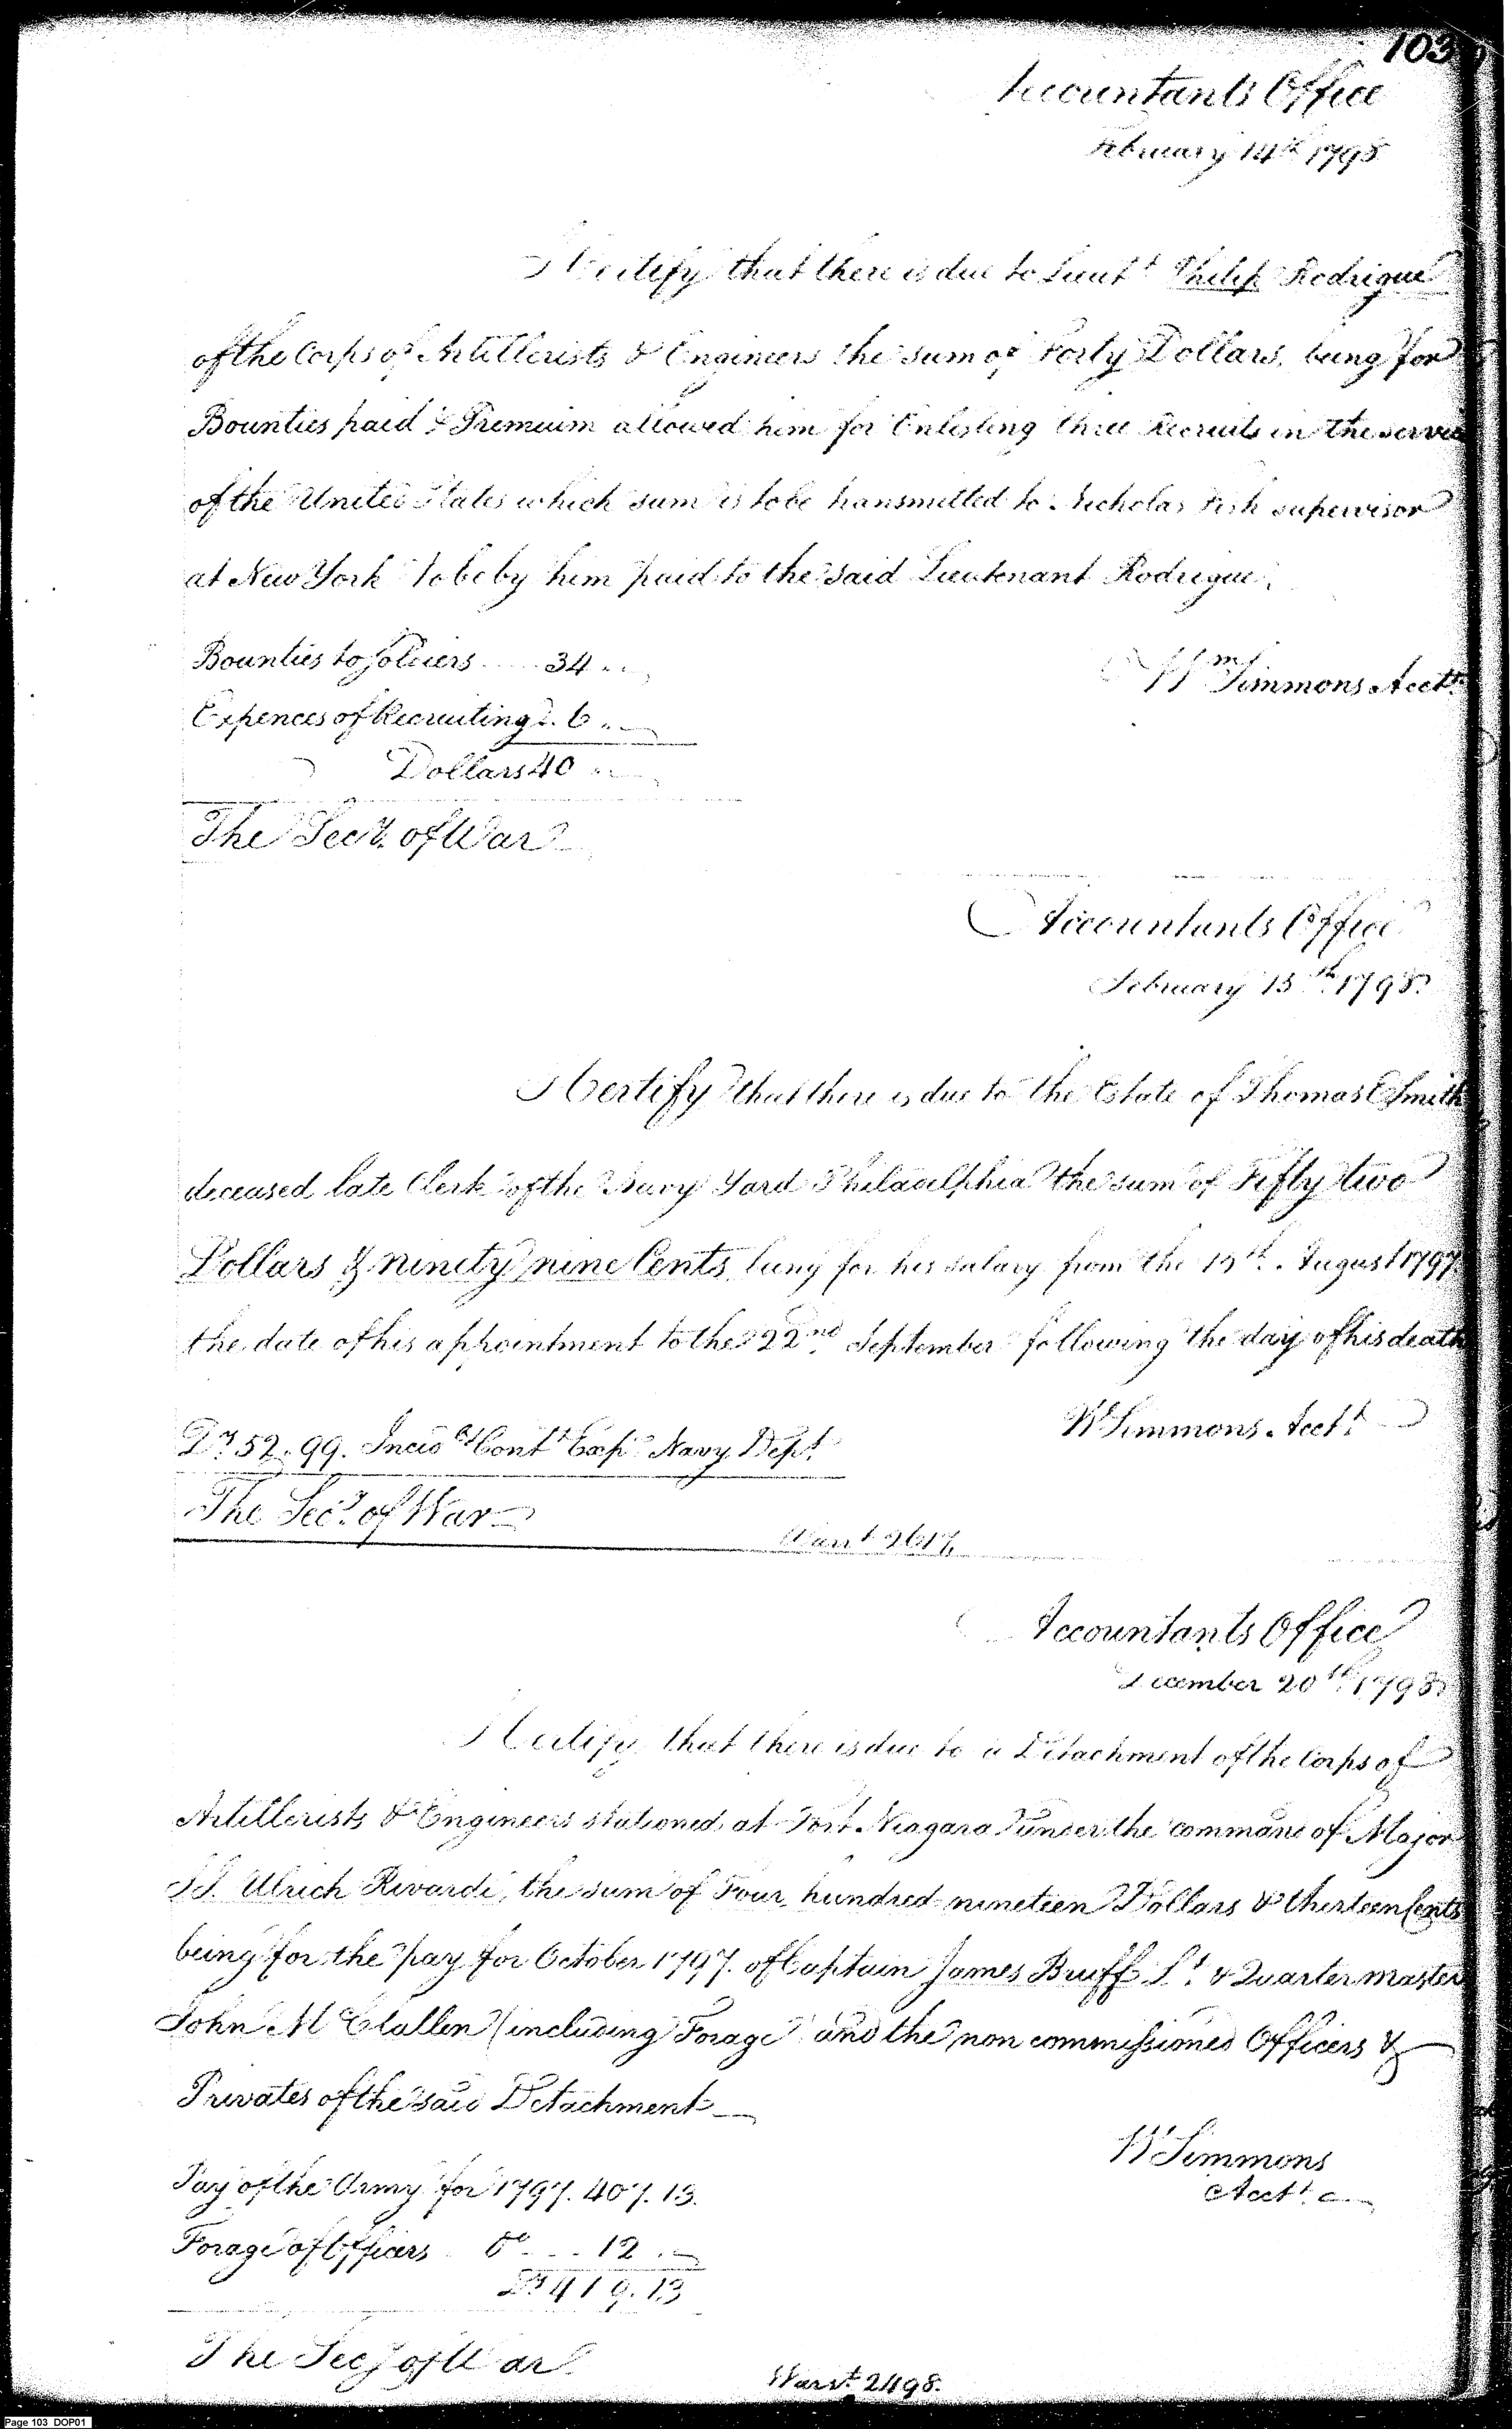 103
Accountants Office
February 14th 1798
I Certify that there is due to Lieut t Philip Rodrigue
of the Corps of Artillerists & Engineers the sum of Forty Dollars, being for
Bounties paid & Premium allowed him for Enlisting three Recruits in the service
of the United States which sum is to be transmitted to Nicholas Fish supervisor
at New York to be by him paid to the said Lieutenant Rodrigue.
Bounties to Soldiers 34
Wm Simmons Acctt
Expences of Recruiting 6
Dollars 40
The Secy. of War
Accountants Office
February 15th 1798.
I Certify that there is due to the Estate of Thomas E Smith
deceased late Clerk of the Navy Yard Philadelphia the sum of Fifty two
Dollars & ninety nine Cents, being for his salary from the 15th. August 1797
the date of his appointment to the 22nd September following the day of his death
Wm Simmons Acctt
Drs 52.99. Incidl Contt Exps Navy Dept
The Secy. of War
Warrt 2617
Accountants Office
December 20th 1798.
I Certify that there is due to a Detachment of the Corps of
Artillerists & Engineers stationed at Fort Niagara under the command of Major
J J. Ulrich Rivardi, the sum of Four hundred nineteen Dollars & thirteen Cents
being for the pay for October 1797. of Captain James Bruff Lt & Quartermaster
John McClallen (including Forage) and the non commissioned Officers &
Privates of the said Detachment
W Simmons
Acctt
Pay of the Army for 1797. 407.13.
Forage of Officers do 12
Drs 419.13
The Secy of War.
Warrt. 2498.
Page 103 DOP01